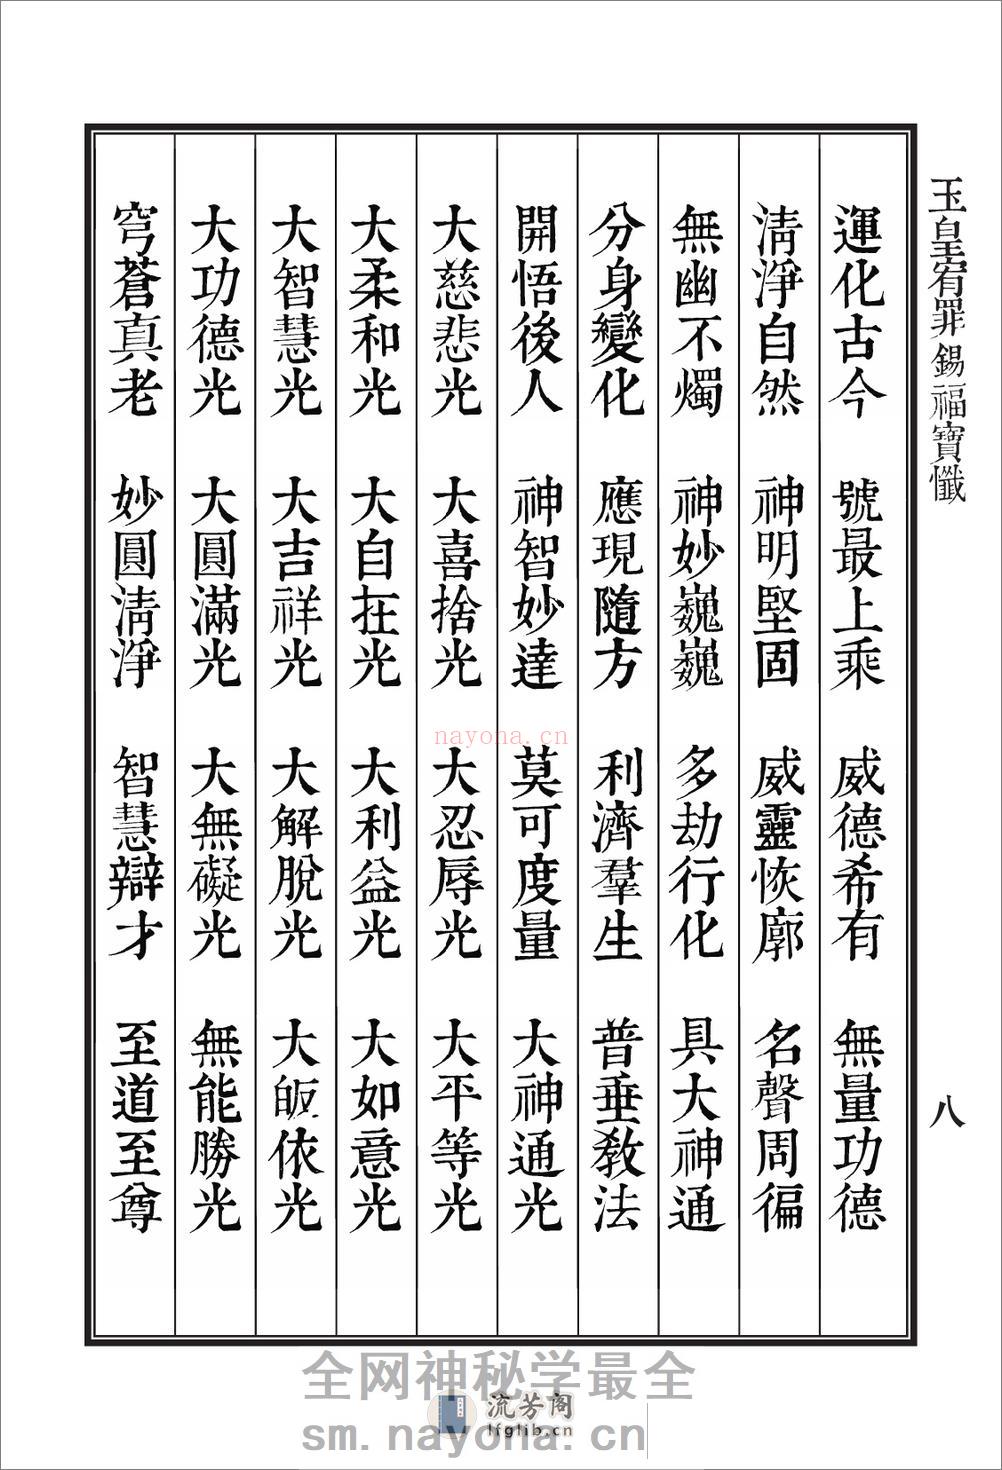 玉皇宥罪錫福寶懺
八
運化古今　號最上乘　威德希有　無量功德
清淨自然　神明堅固　威靈恢廓　名聲周徧
無幽不燭　神妙巍巍　多劫行化　具大神通
分身變化　應現隨方　利濟羣生　普垂教法
開悟後人　神智妙達　莫可度量　大神通光
大慈悲光　大喜捨光　大忍辱光　大平等光
大柔和光　大自在光　大利益光　大如意光
大智慧光　大吉祥光　大解脫光　大皈依光
大功德光　大圓滿光　大無礙光　無能勝光
穹蒼真老　妙圓清淨　智慧辯才　至道至尊
nayona.cn
全网神秘学最全
流芳阁
lfglib.cn
sm.nayona.cn